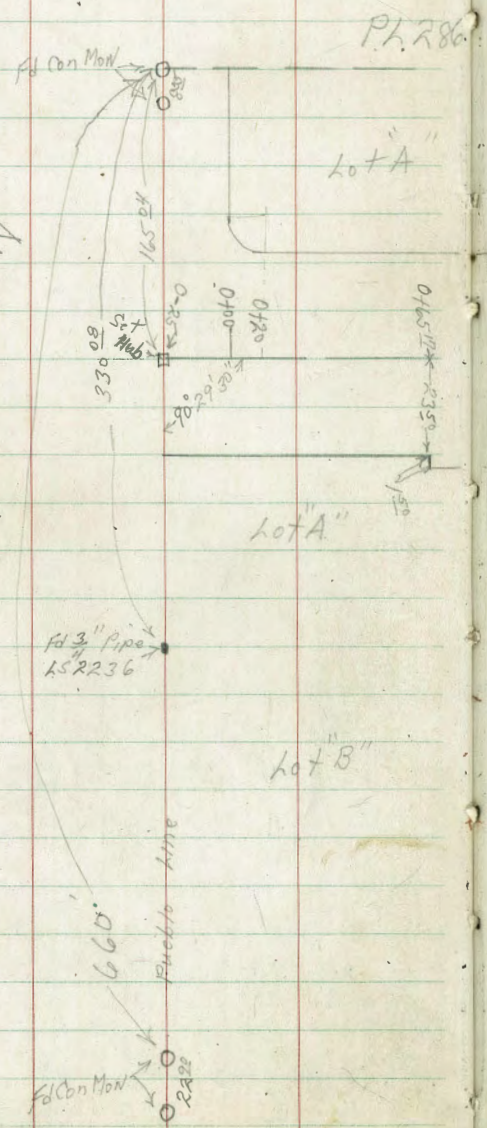 P.L. 286
Fd Con Mon
Lot "A"
165 04
330 08
Set
Hub
0-25
0+00
0+20
90° 29' 30"
1 50
Lot "A"
Fd 3/4" Pipe
LS 2236
Lot "B"
Pueblo Line
660'
Fd Con Mon